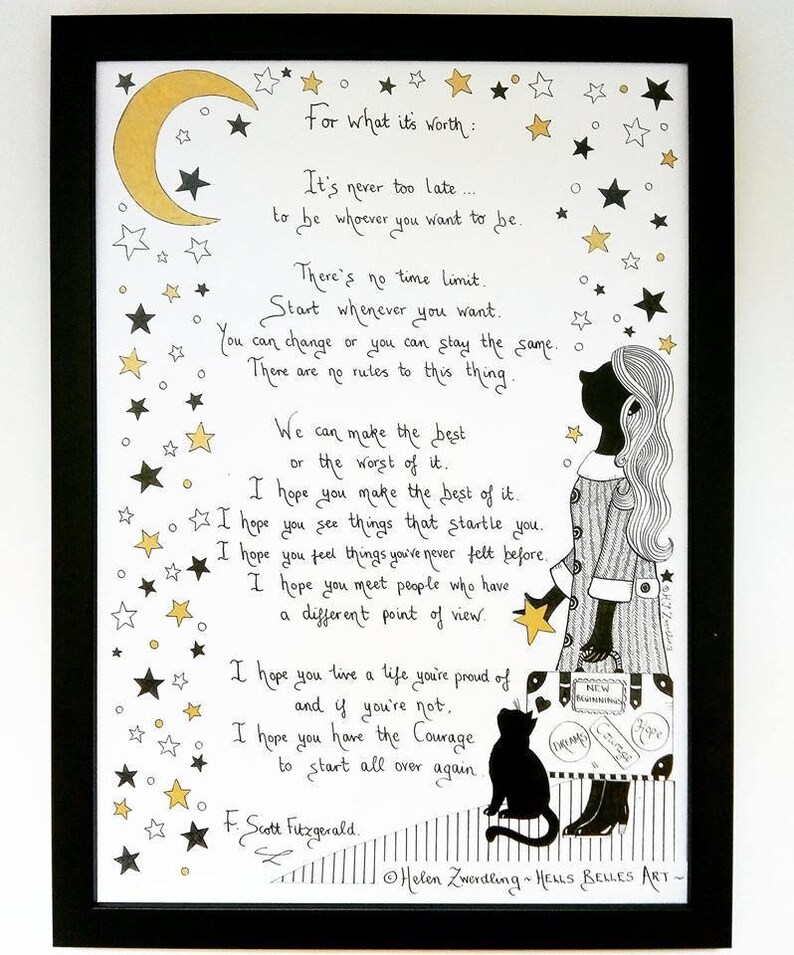 For what it's worth:
It's never too late...
to be whoever you want to be.
There's no time limit.
Start whenever you want.
You can change or you can stay the same.
There are no rules to this thing.
We can make the best
or the worst of it.
I hope you make the best of it.
I hope you see things that startle you.
I hope you feel things you've never felt before.
I hope you meet people who have
a different point of view.
I hope you live a life you're proud of
and if you're not,
I hope you have the Courage
to start all over again.
F. Scott Fitzgerald.
NEW
BEGINNINGS
DREAMS
Courage
Hope
©Helen Zwerdling ~ HELLS BELLES ART ~